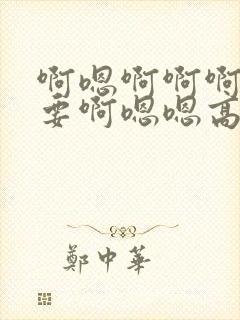 啊嗯啊啊啊
要啊嗯嗯高
鄭中華